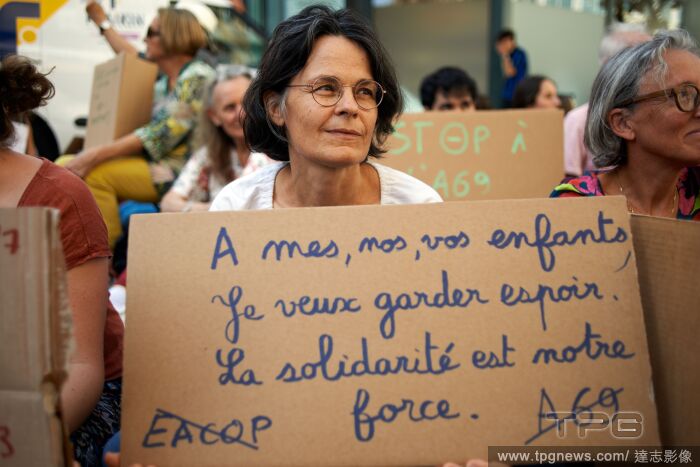 STOP À
L'A69
A mes, nos, vos enfants,
Je veux garder espoir.
La solidarité est notre
force.
EACOP
A69
TPG
www.tpgnews.com/ 達志影像